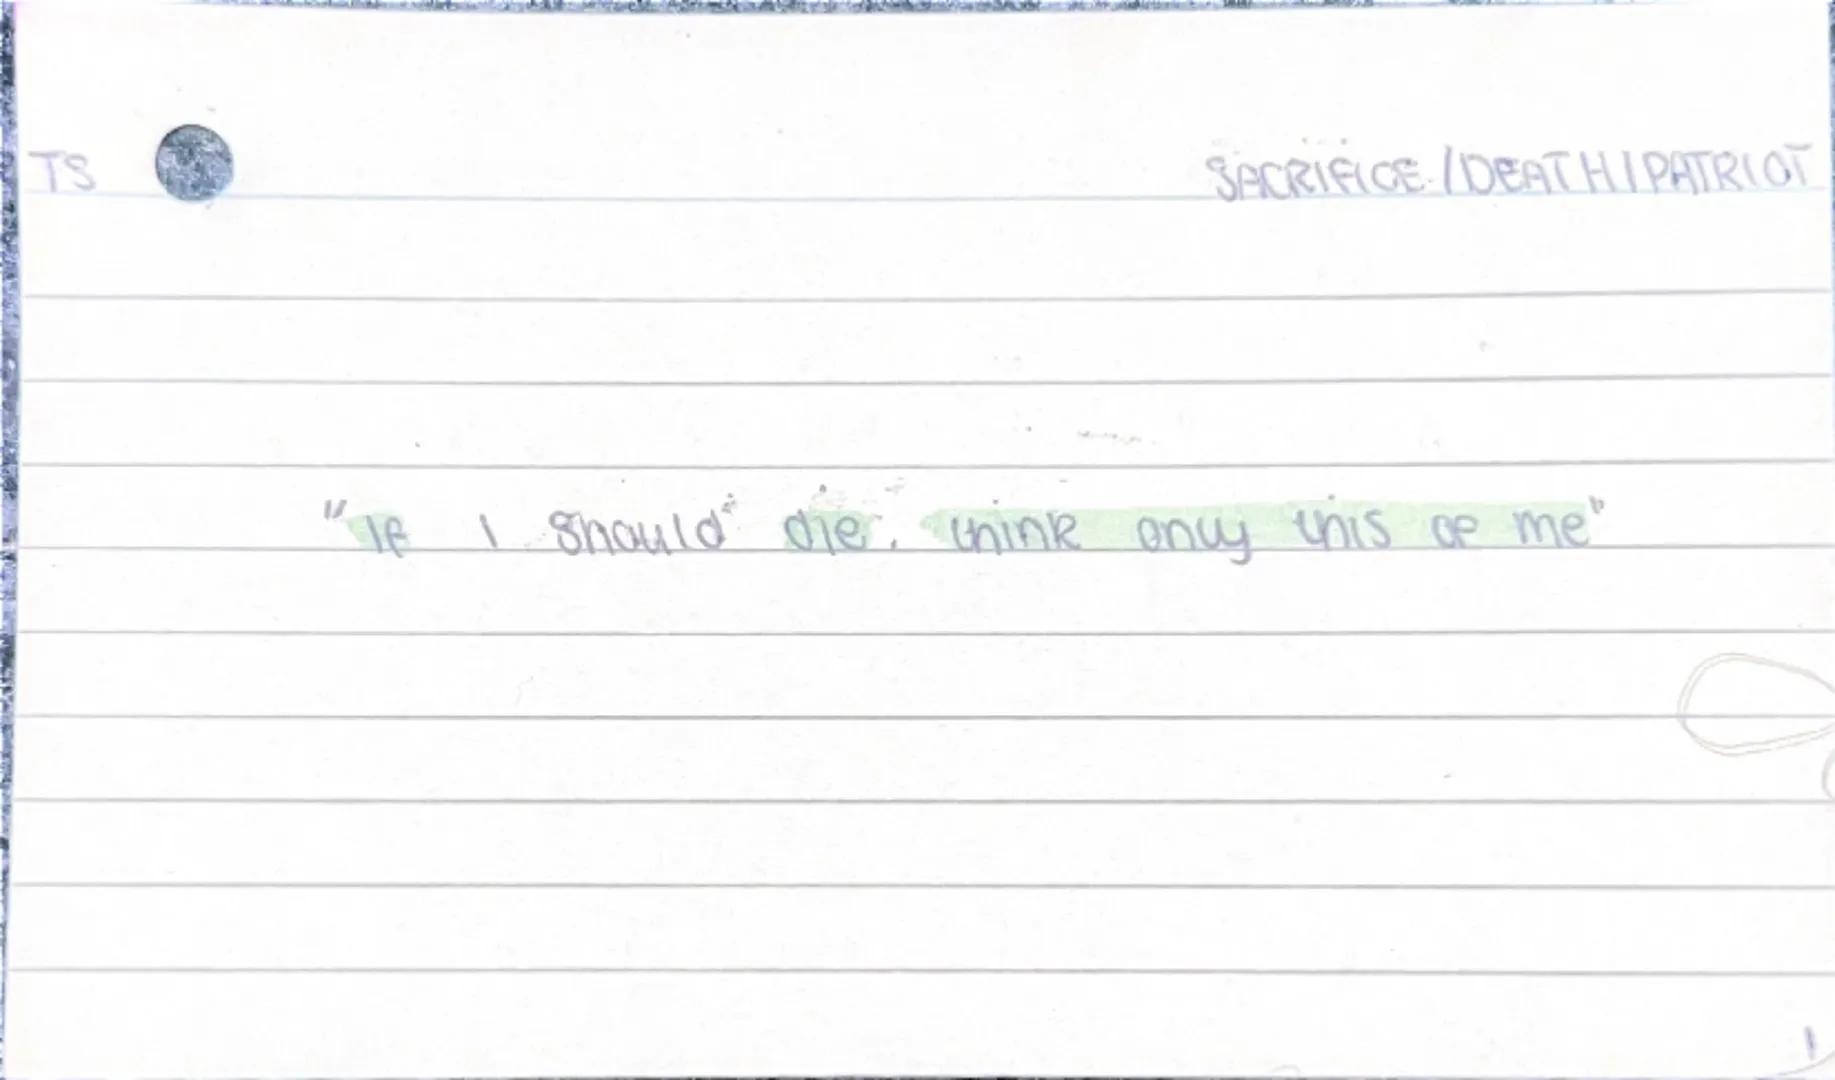 TS
SACRIFICE / DEATH / PATRIOT
"If I should die, think only this of me"
1